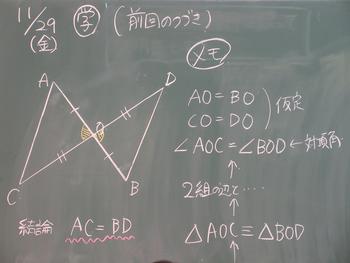 11/29
(金)
㋕ (前回のつづき)
メモ
A
D
O
C
B
AO = BO
CO = DO
仮定
∠AOC = ∠BOD ← 対頂角
↑
2組の辺と‥‥
↑
△AOC ≡ △BOD
↑
結論 AC = BD